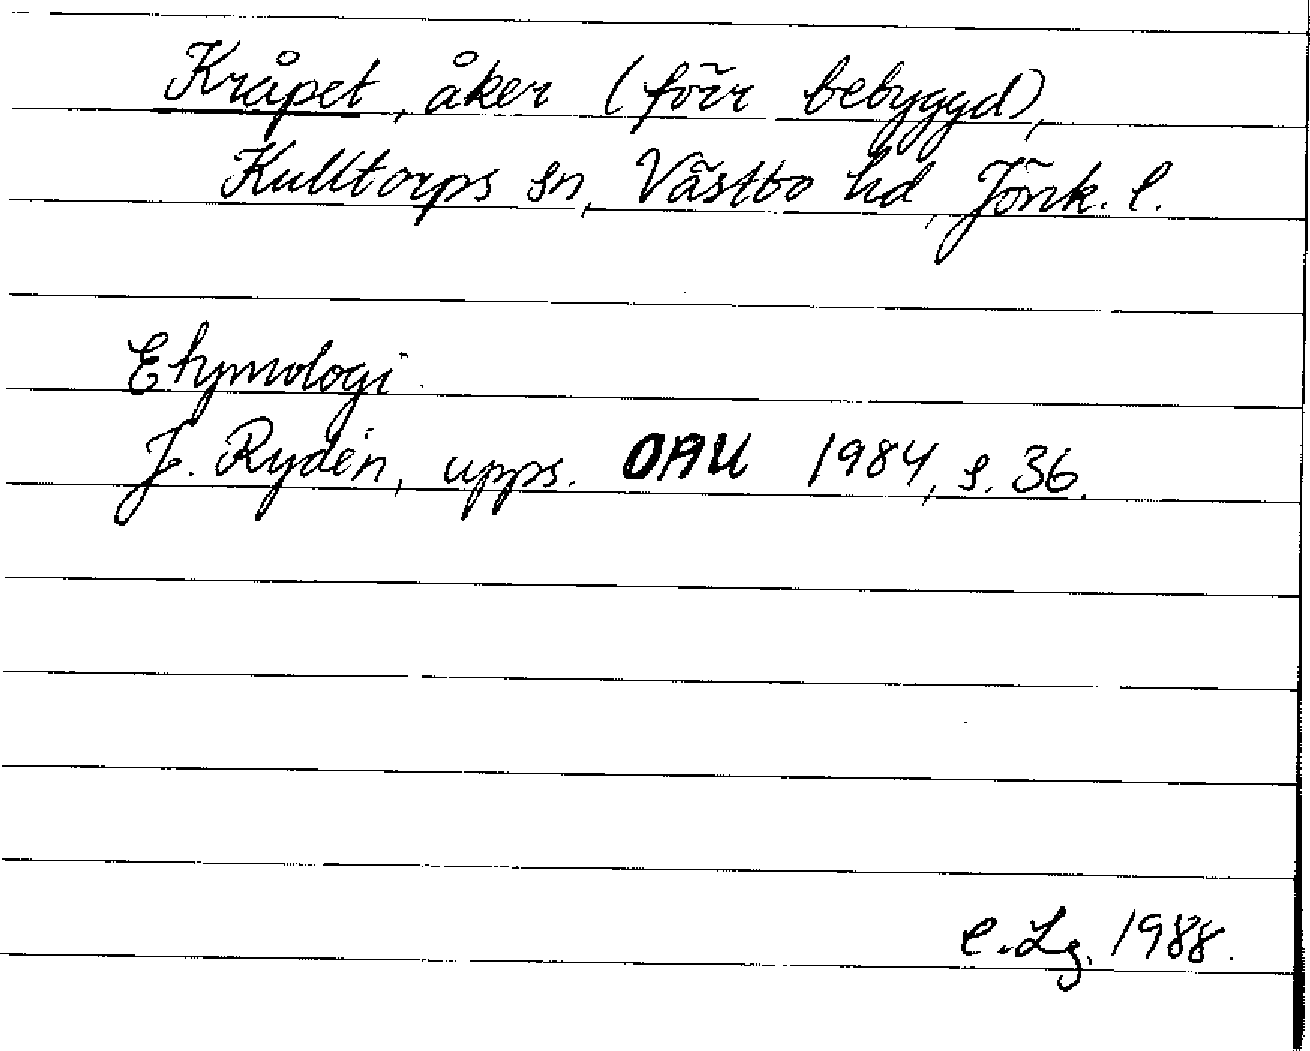 Kråpet, åker (förr bebyggd),
Kulltorps sn, Västbo hd, Jönk. l.
Etymologi
J. Rydén, upps. OAU 1984, s. 36.
C. Lg. 1988.